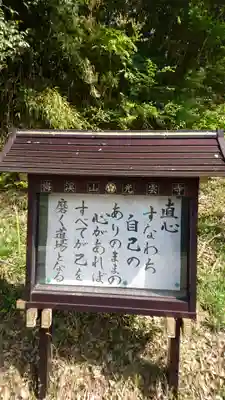 山光雲寺
直心
すなわち
自己の
ありのままの
心があれば
すべてが己を
磨く道場となる